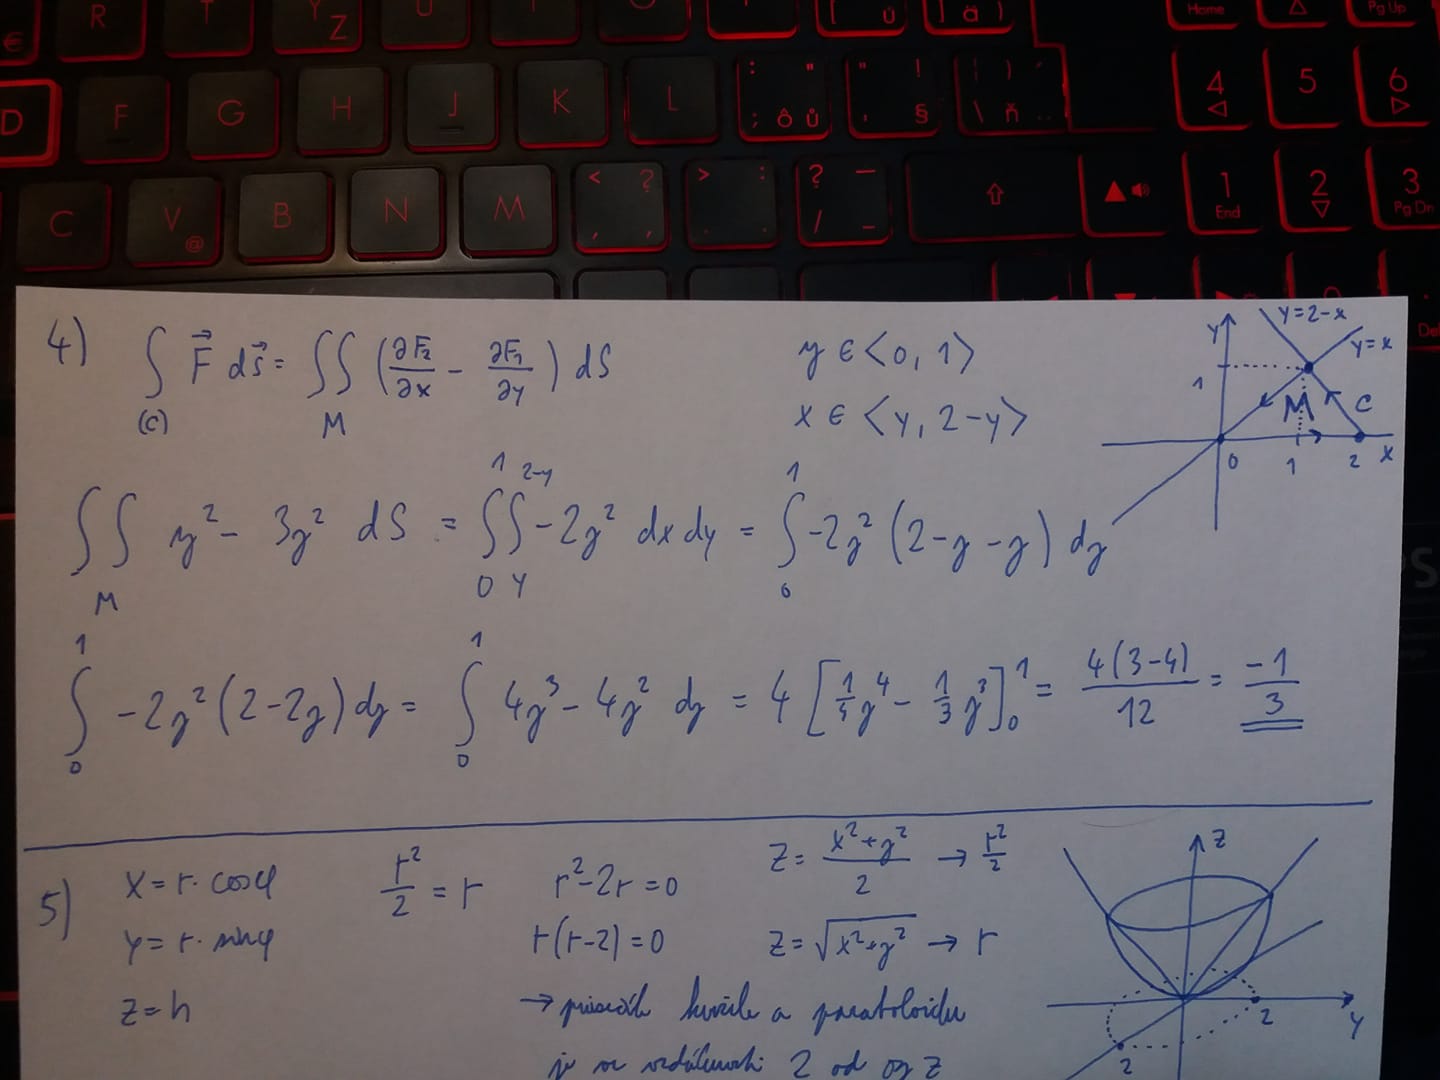 R T Y Z U I O P [ ú ] ä ) Home △ Pg Up
€ D F G H J K L : " ; ô ů " ! ' § ) \ ň 4 ◁ 5 6 ▷
C V @ B N M < ? , > : . ? — / _ ⇧ ▲ 1 End 2 ▽ 3 Pg Dn
Del
4) ∫_(c) F⃗ ds⃗ = ∬_M (∂F₂/∂x - ∂F₁/∂y) dS
y ∈ <0, 1>
x ∈ <y, 2-y>
y=2-x
y=x
Y 1 M C 0 1 2 X
∬_M y² - 3y² dS = ∫_0^1 ∫_y^{2-y} -2y² dx dy = ∫_0^1 -2y² (2-y-y) dy
∫_0^1 -2y² (2-2y) dy = ∫_0^1 4y³ - 4y² dy = 4 [1/4 y⁴ - 1/3 y³]_0^1 = 4(3-4)/12 = -1/3
5) x = r. cosφ
y = r. sinφ
z = h
r²/2 = r
r²-2r=0
r(r-2)=0
z = (x²+y²)/2 → r²/2
z = √(x²+y²) → r
→ průsečík kužele a paraboloidu
je ve vzdálenosti 2 od osy z
Z 2 2 Y